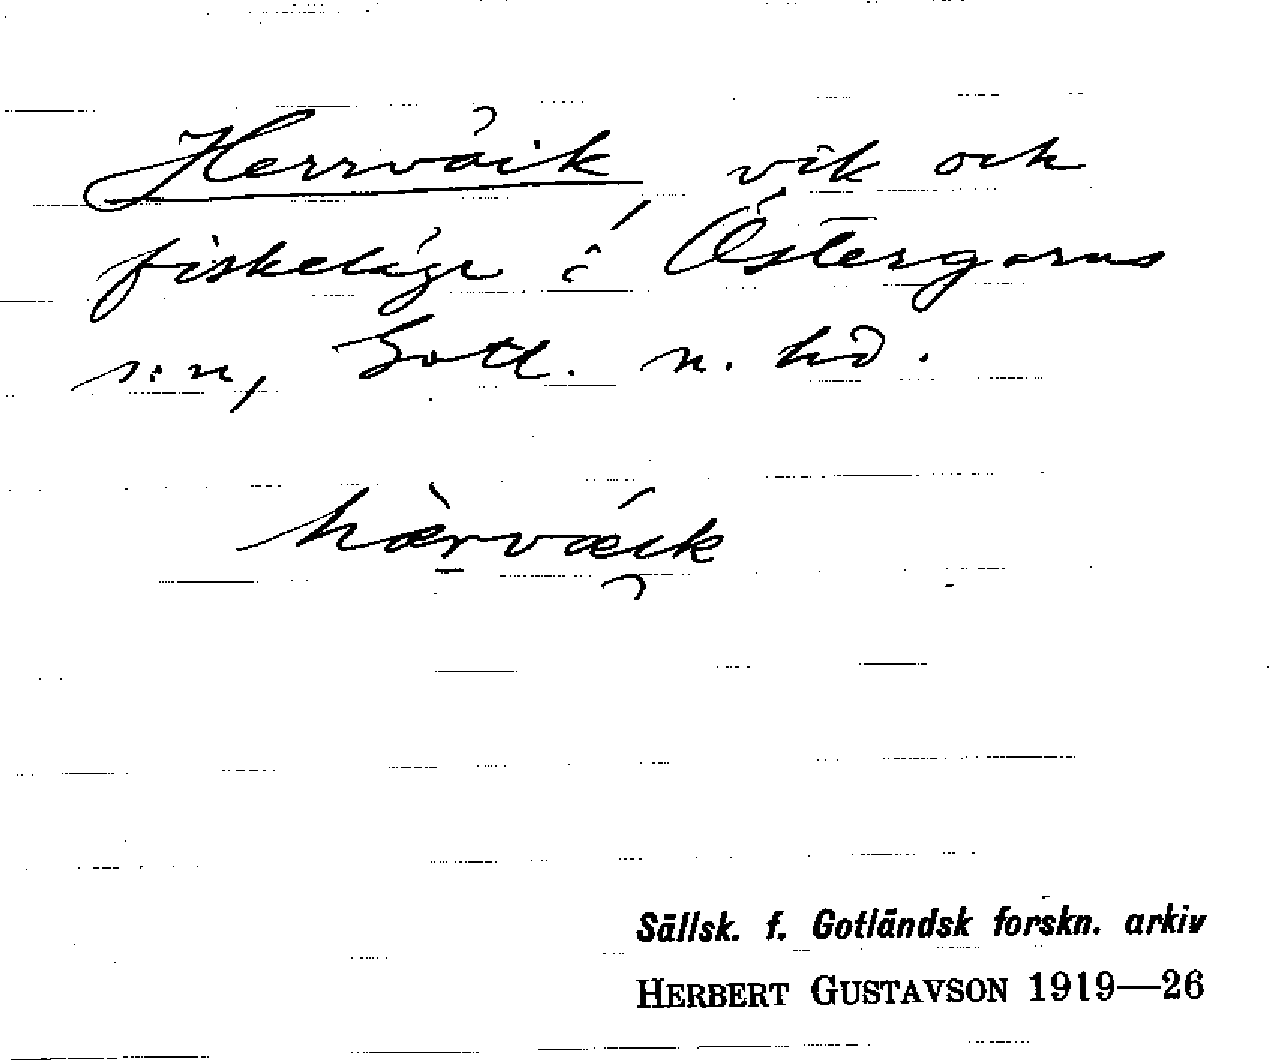 Herrvåik, vik och
fiskeläge i Östergarns
s:n, Gotl. n. hd.
hærvæik
Sällsk. f. Gotländsk forskn. arkiv
HERBERT GUSTAVSON 1919—26